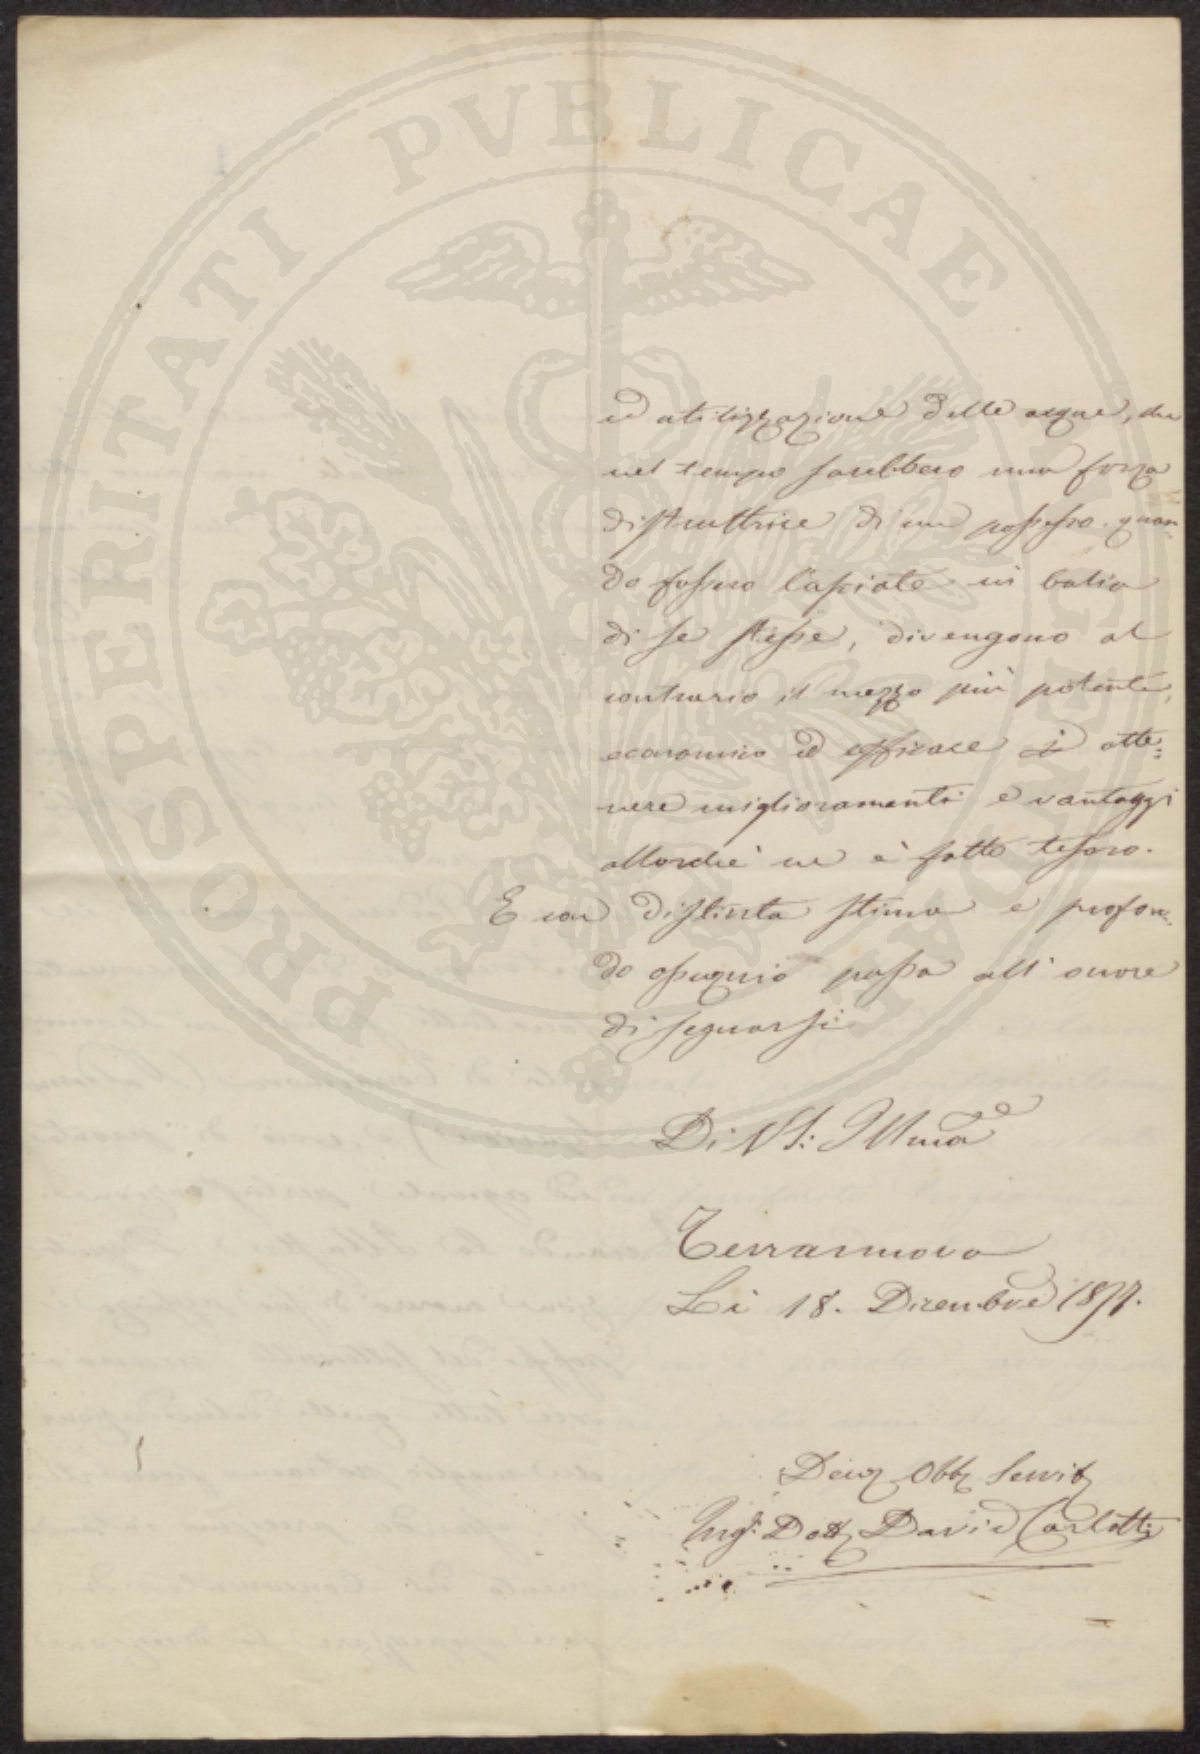 PROSPERITATI PVBLICAE AVGENDAE
ed utilizzazione delle acque, che
nel tempo sarebbero una forza
distruttrice di un possesso quan-
do fossero lasciate in balia
di se stesse, divengono al
contrario il mezzo più potente,
economico ed efficace di otte=
nere miglioramenti e vantaggi
allorchè ne è fatto tesoro.
E con distinta stima e profon-
do ossequio passo all'onore
di segnarsi
Di VS: Illma
Terranuova
Li 18. Dicembre 1877.
Devo Obbo Servite
Ingr. Dott David Carlotti